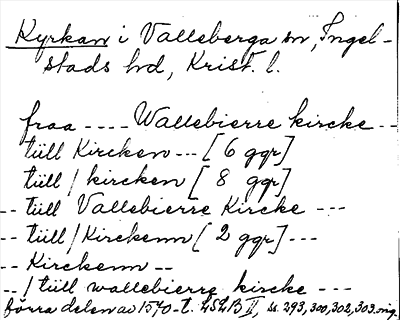 Kyrkan i Valleberga sn, Ingel-
stads hd, Krist. l.
fraa ---- Wallebierre kircke --
tüll Kircken --- [6 ggr]
tüll / kircken [8 ggr]
-- tüll Vallebierre Kircke ---
-- tüll / Kirckenn [2 ggr] ---
-- Kirckenn --
-- / tüll wallebierre kircke ---
förra delen av 1570-t. LSLB II, ss. 293, 300, 302, 303. orig.